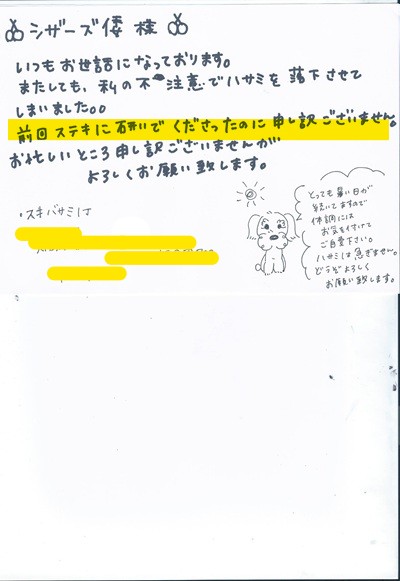 シザーズ倭 様
いつもお世話になっております。
またしても、私の不注意でハサミを落下させて
しまいました。。
前回ステキに研いでくださったのに申し訳ございません。
お忙しいところ申し訳ございませんが
よろしくお願い致します。
・スキバサミ1丁
とっても暑い日が
続いてますので
体調には
お気を付けて
ご自愛下さい。
ハサミは急ぎません。
どうぞよろしく
お願い致します。